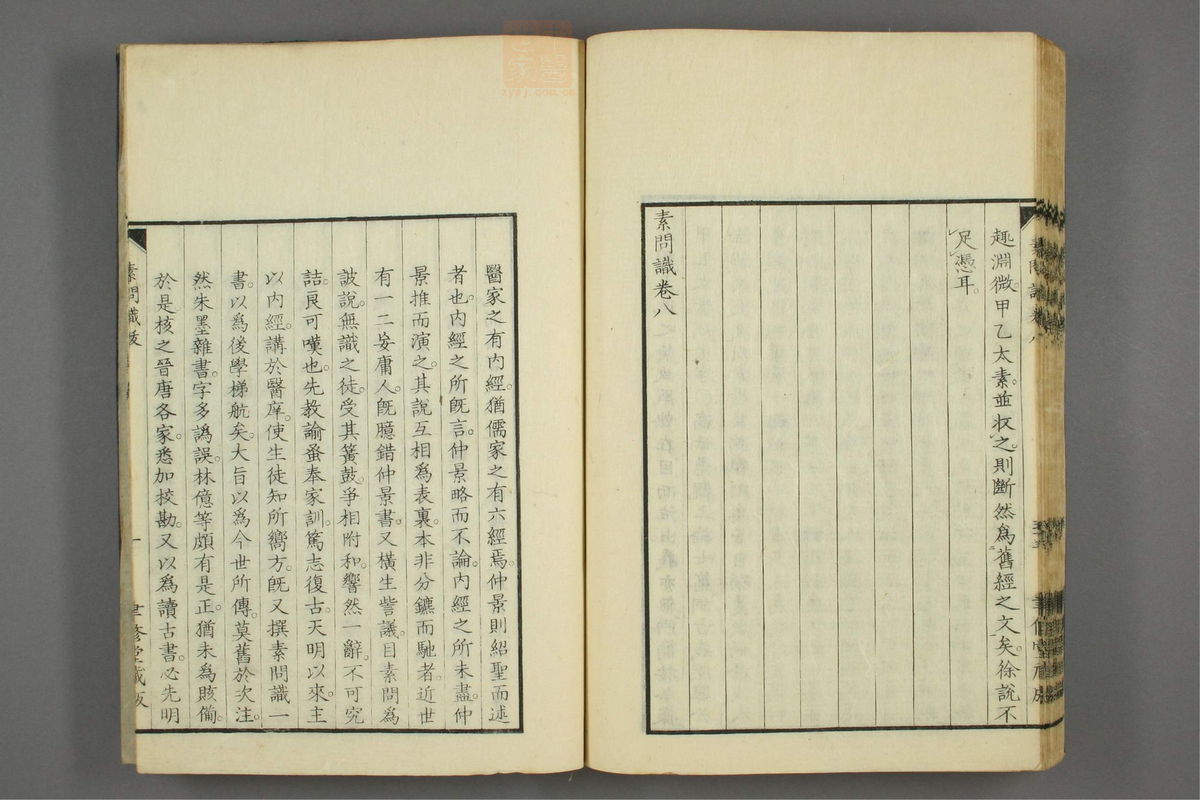 趣淵微。甲乙太素。並收之。則斷然爲舊經之文矣。徐說不
足憑耳。
素問識卷八
醫家之有內經。猶儒家之有六經焉。仲景則紹聖而述
者也。內經之所既言。仲景略而不論。內經之所未盡。仲
景推而演之。其說互相爲表裏。本非分鑣而馳者。近世
有一二妄庸人。既臆錯仲景書。又橫生訾議。目素問爲
詖說。無識之徒。受其簧鼓。爭相附和。響然一辭。不可究
詰。良可嘆也。先教諭蚤奉家訓。篤志復古。天明以來。主
以內經。講於醫庠。使生徒知所嚮方。既又撰素問識一
書。以爲後學梯航矣。大旨以爲今世所傳。莫舊於次注。
然朱墨雜書。字多譌誤。林億等頗有是正。猶未爲賅備。
於是核之晉唐各家。悉加挍勘。又以爲讀古書。必先明
素問識跋